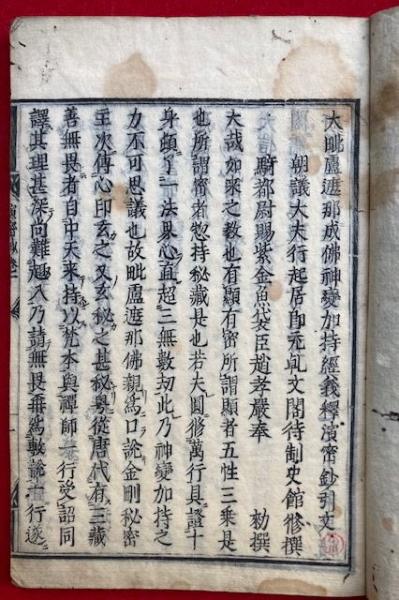 大毗盧遮那成佛神變加持經義釋演密鈔引文
朝議大夫行起居郎充乾文閣待制史館修撰
騎都尉賜紫金魚袋臣趙孝嚴奉　勑撰
大哉如來之教也有顯有密所謂顯者五性三乘是
也所謂密者惣持秘藏是也若夫圓修萬行具證十
身頓了一法界心直超三無數刧此乃神變加持之
力不可思議也故毗盧遮那佛親爲口說金剛秘密
主次傳心印玄之又玄秘之甚秘粵從唐代有三藏
善無畏者自中天來持以梵本與禪師一行受詔同
譯其理甚深向難趣入乃請無畏再爲敷說一行遂
演密抄卷一